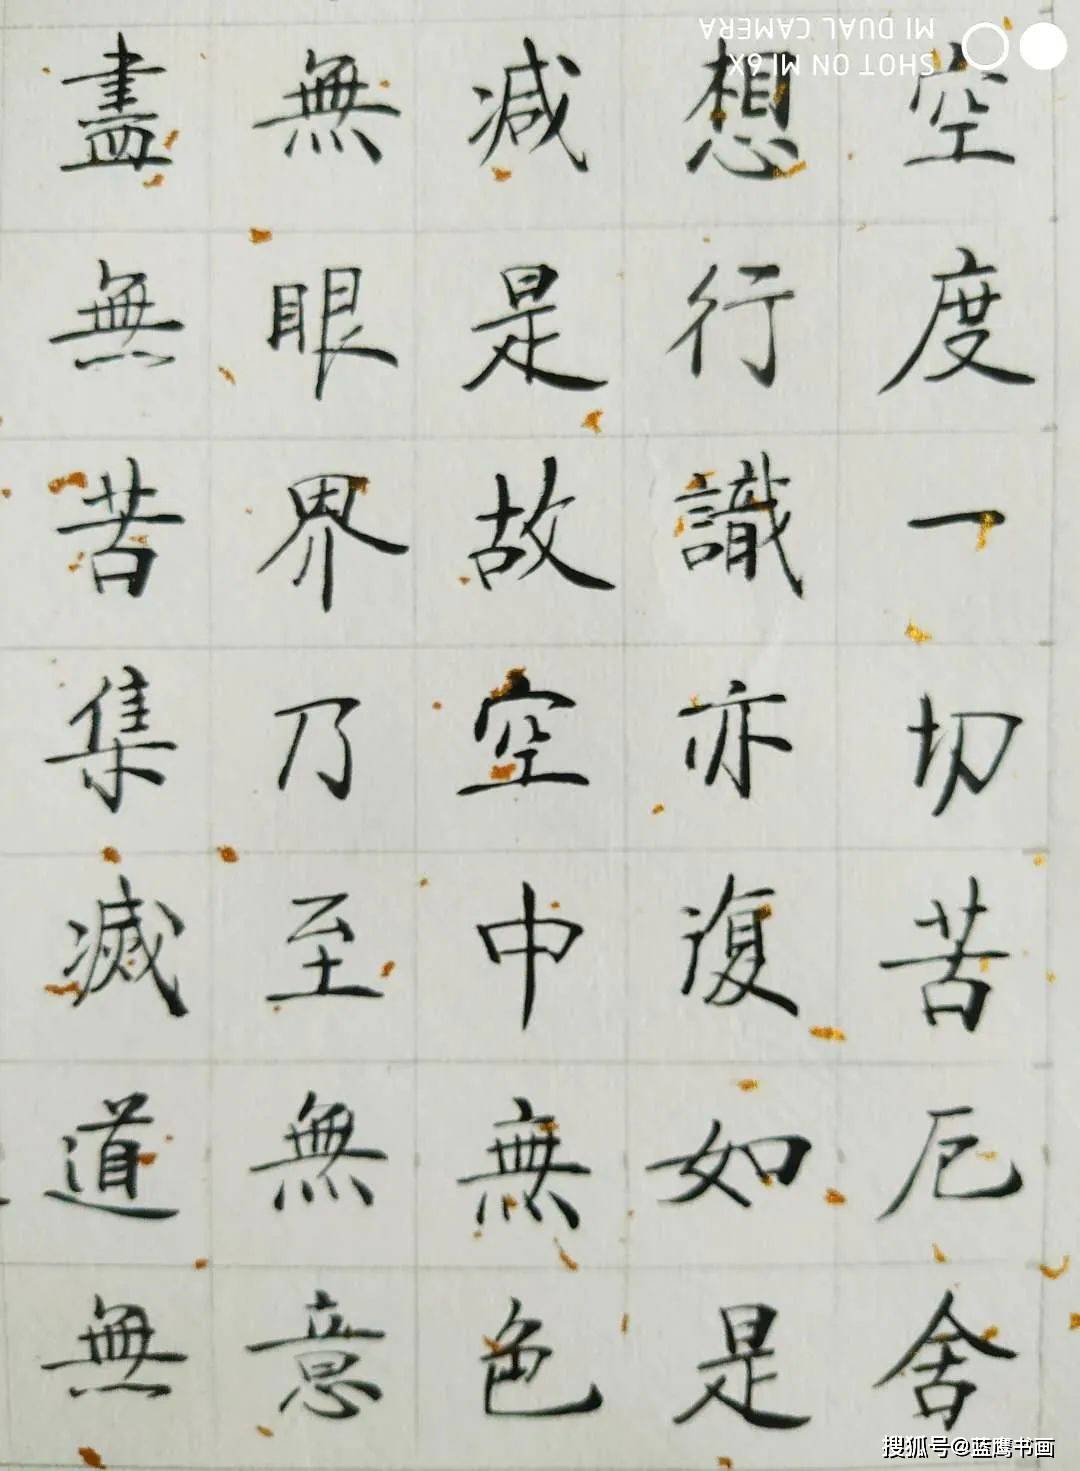 空度一切苦厄舍
想行識亦復如是
減是故空中無色
無眼界乃至無意
盡無苦集滅道無
SHOT ON MI 6X
MI DUAL CAMERA
搜狐号@蓝鹰书画